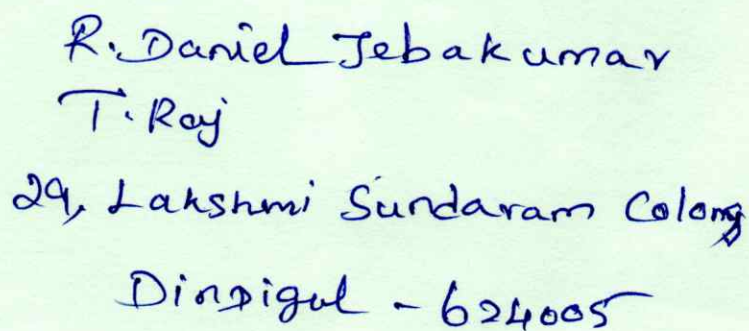 R. Daniel Jebakumar
T. Raj
29, Lakshmi Sundaram Colony
Dindigul - 624005